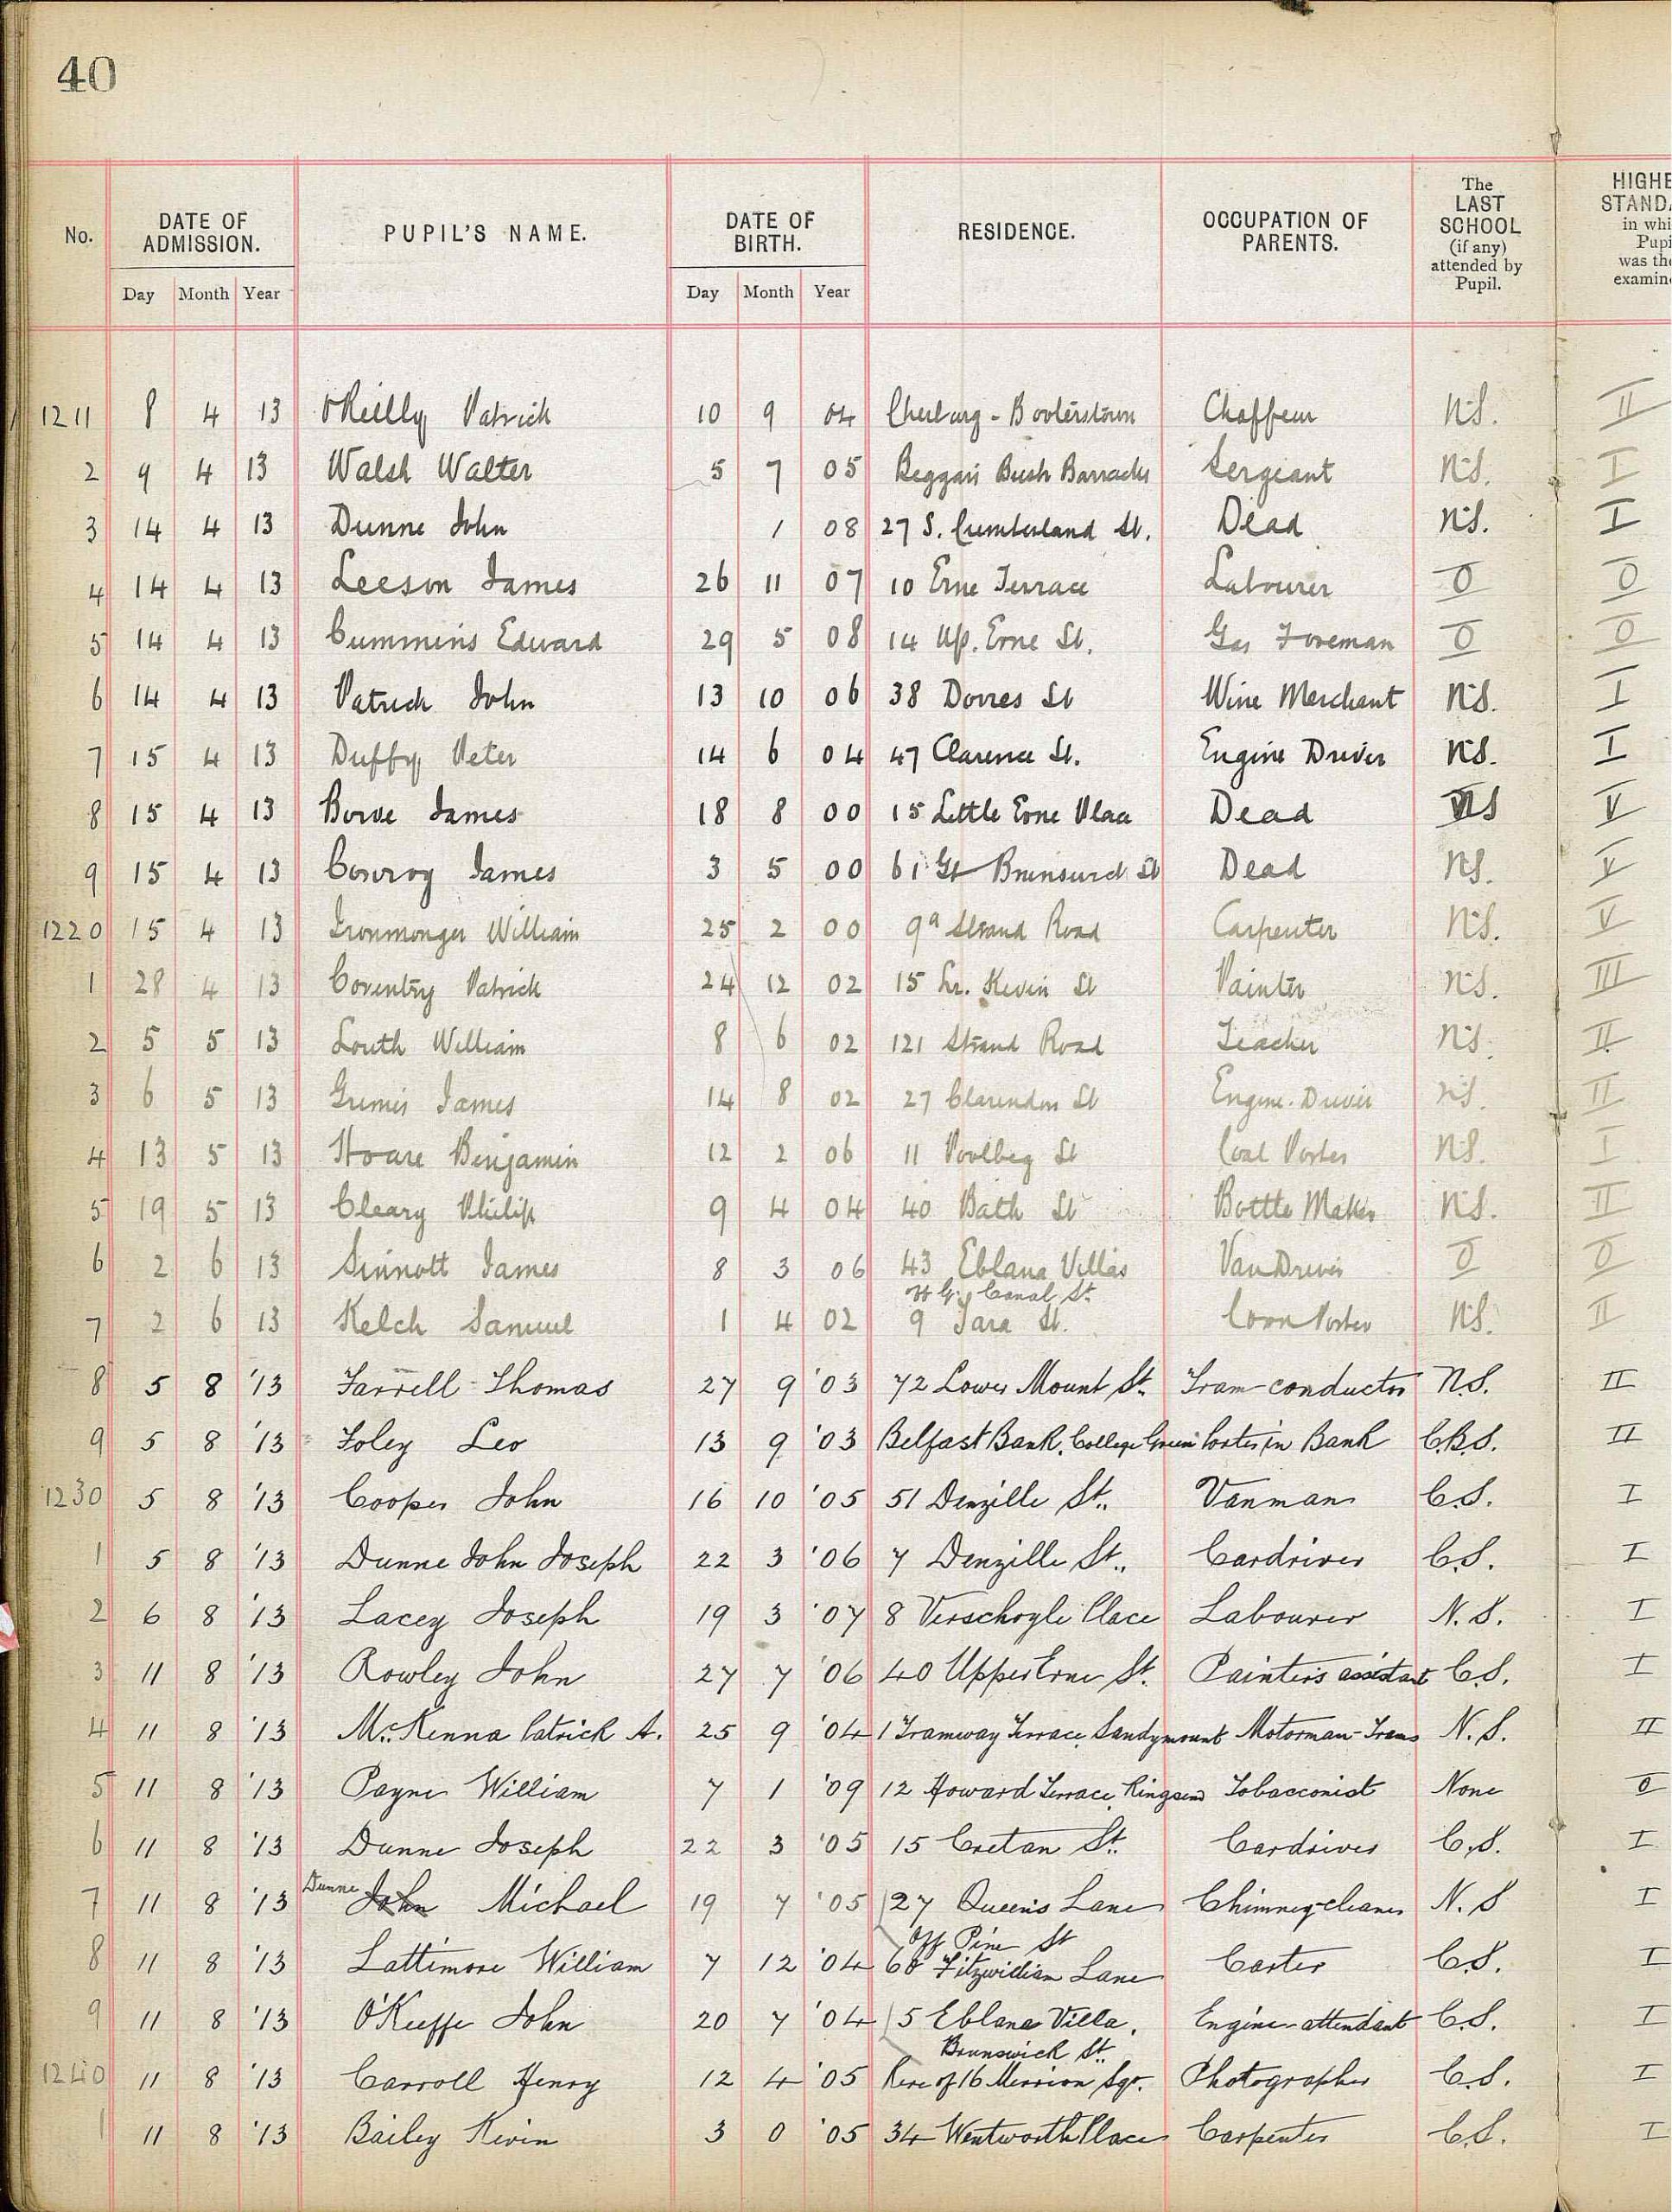 40
No. DATE OF ADMISSION. PUPIL'S NAME. DATE OF BIRTH. RESIDENCE. OCCUPATION OF PARENTS. The LAST SCHOOL (if any) attended by Pupil. HIGHE STANDA in whi Pupi was the examine
Day Month Year Day Month Year
1211 8 4 13 O'Reilly Patrick 10 9 04 Cherburg - Booterstown Chaffeur N.S. II
2 9 4 13 Walsh Walter 5 7 05 Beggars Bush Barracks Sergeant N.S. I
3 14 4 13 Dunne John 1 08 27 S. Cumberland St. Dead N.S. I
4 14 4 13 Leeson James 26 11 07 10 Erne Terrace Labourer O O
5 14 4 13 Cummins Edward 29 5 08 14 Up. Erne St. Gas Foreman O O
6 14 4 13 Patrick John 13 10 06 38 Dorres St Wine Merchant N.S. I
7 15 4 13 Duffy Peter 14 6 04 47 Clarence St. Engine Driver N.S. I
8 15 4 13 James 18 8 00 15 Little Erne Place Dead NS V
9 15 4 13 Conroy James 3 5 00 61 Gt St Dead N.S. V
1220 15 4 13 Ironmonger William 25 2 00 9a Strand Road Carpenter N.S. V
1 28 4 13 Coventry Patrick 24 12 02 15 Lr. Kevin St Painter N.S. III
2 5 5 13 Louth William 8 6 02 121 Strand Road Teacher N.S. II
3 6 5 13 Grimes James 14 8 02 27 Clarendon St Engine-Driver N.S. II
4 13 5 13 Hoare Benjamin 12 2 06 11 Poolbeg St Coal Porter N.S. I
5 19 5 13 Cleary Philip 9 4 04 40 Bath St Bottle Maker N.S. II
6 2 6 13 Sinnott James 8 3 06 43 Eblana Villas Van Driver O O
Canal St.
7 2 6 13 Kelch Samuel 1 4 02 9 Tara St. Corn Porter N.S. II
8 5 8 '13 Farrell Thomas 27 9 '03 72 Lower Mount St. Tram-conductor N.S. II
9 5 8 '13 Foley Leo 13 9 '03 Belfast Bank, College Green Porter in Bank C.B.S. II
1230 5 8 '13 Cooper John 16 10 '05 51 Denzille St. Vanman C.S. I
1 5 8 '13 Dunne John Joseph 22 3 '06 7 Denzille St. Cardriver C.S. I
2 6 8 '13 Lacey Joseph 19 3 '07 8 Verschoyle Place Labourer N.S. I
3 11 8 '13 Rowley John 27 7 '06 40 Upper Erne St. Painter's assistant C.S. I
4 11 8 '13 McKenna Patrick A. 25 9 '04 1 Tramway Terrace, Sandymount Motorman-Trams N.S. II
5 11 8 '13 Payne William 7 1 '09 12 Howard Terrace, Ringsend Tobacconist None O
6 11 8 '13 Dunne Joseph 22 3 '05 15 Cretan St. Cardriver C.S. I
7 11 8 '13 Dunne John Michael 19 7 '05 27 Queen's Lane Chimney-cleaner N.S I
Off Pine St
8 11 8 '13 Lattimore William 7 12 '04 68 Fitzwilliam Lane Carter C.S. I
9 11 8 '13 O'Keeffe John 20 7 '04 5 Eblana Villa, Engine-attendant C.S. I
Brunswick St.
1240 11 8 '13 Carroll Henry 12 4 '05 Rere of 16 Merrion Sqr. Photographer C.S. I
1 11 8 '13 Bailey Kevin 3 0 '05 34 Wentworth Place Carpenter C.S. I